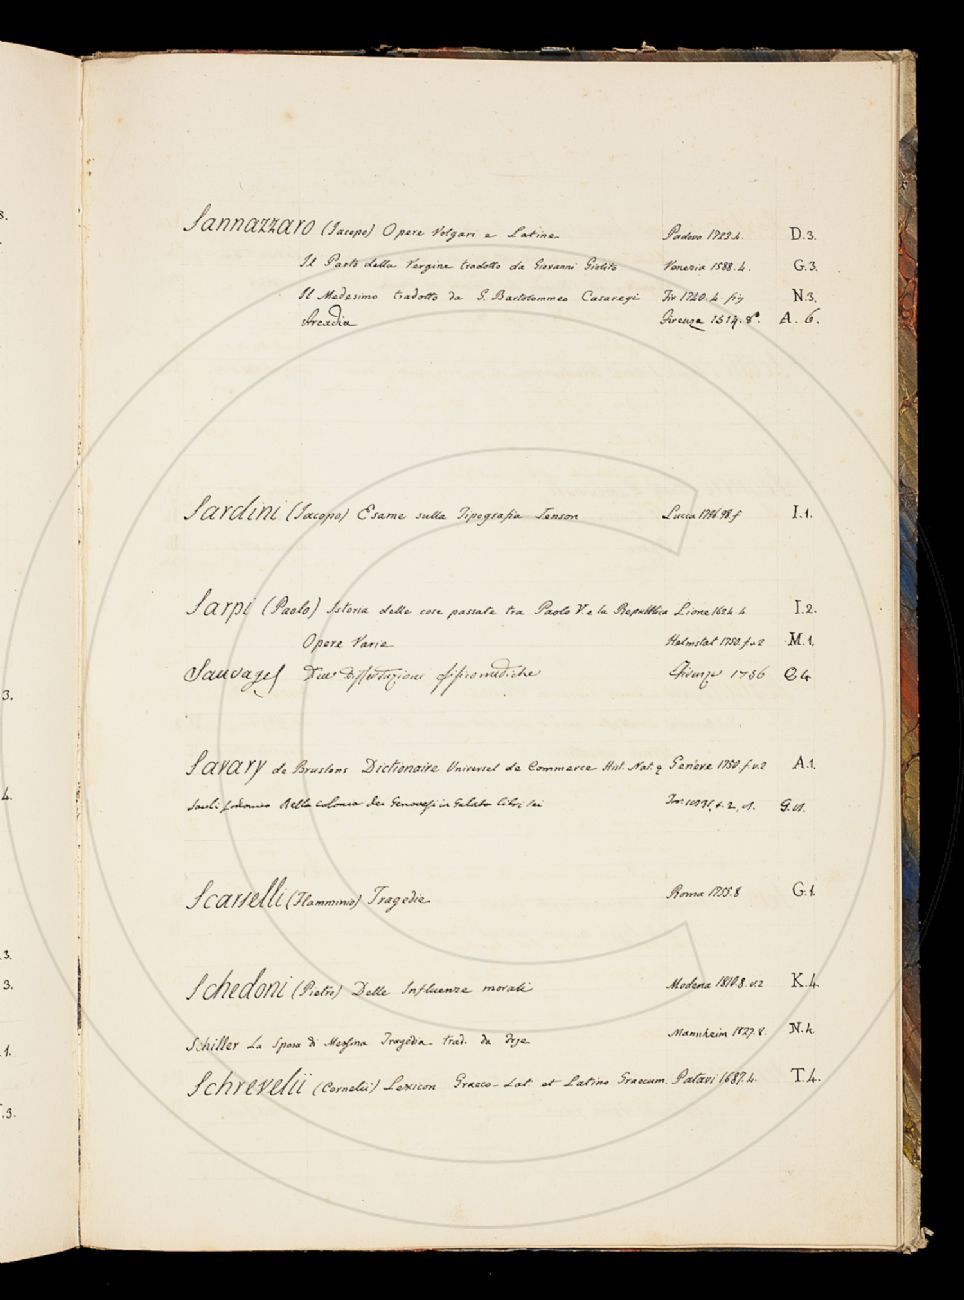 Sannazzaro (Jacopo) Opere Volgari e Latine Padova 1723.4. D.3.
Il Parto della Vergine tradotto da Giovanni Giolito Venezia 1588.4. G.3.
Il Medesimo tradotto da G. Bartolommeo Casaregi Fir 1740.4. fig N.3.
Arcadia Firenze 1514.8º. A.6.
Sardini (Jacopo) Esame sulla Tipografia Jenson Lucca 1796.98.f I.1.
Sarpi (Paolo) Istoria delle cose passate tra Paolo V. e la Repubblica Lione 1624.4 I.2.
Opere Varie Helmstat 1750.f.v.2 M.1.
Sauvages Due Dissertazioni fisicomediche Firenze 1756 C.4
Savary de Bruslons Dictionaire Universel de Commerce Hist. Nat. Genève 1750.f.v.2 A.1.
Sauli Della colonia dei Genovesi in Galata libri sei G.
Scarselli (Flamminio) Tragedie Roma 1755.8 G.1
Schedoni (Pietro) Delle Influenze morali Modena 1810.8.v.2 K.4.
Schiller La Sposa di Messina Tragedia trad. da Mannheim 1827.8. N.4.
Schrevelii (Cornelii) Lexicon Graeco-Lat. et Latino Graecum. Patavi 1687.4. T.4.
8.
3.
4.
3.
3.
1.
.3.